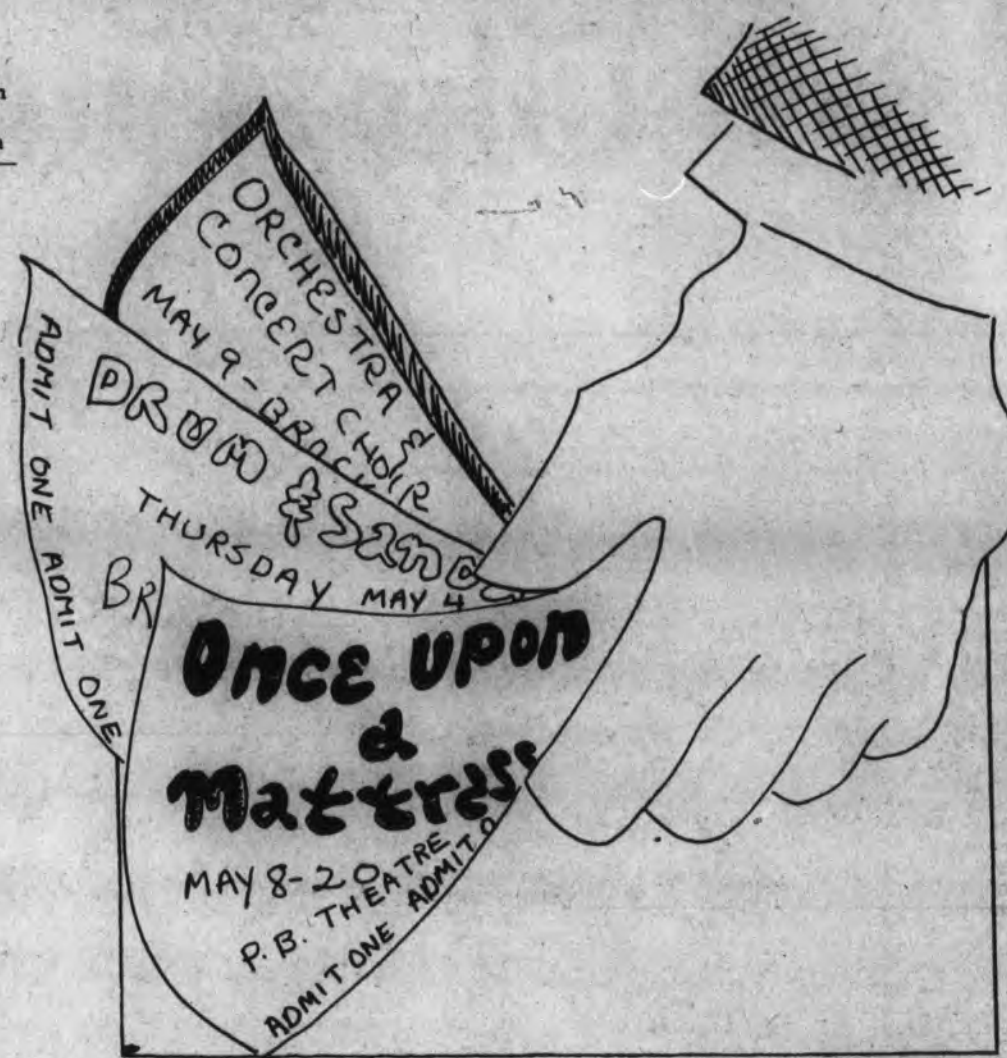 ORCHESTRA &
CONCERT CHOIR
MAY 9 - BROCK
DRUM & SAND
THURSDAY MAY 4
BR
ADMIT ONE ADMIT ONE
Once upon
a
Mattress
MAY 8-20
P.B. THEATRE
ADMIT ONE ADMIT O